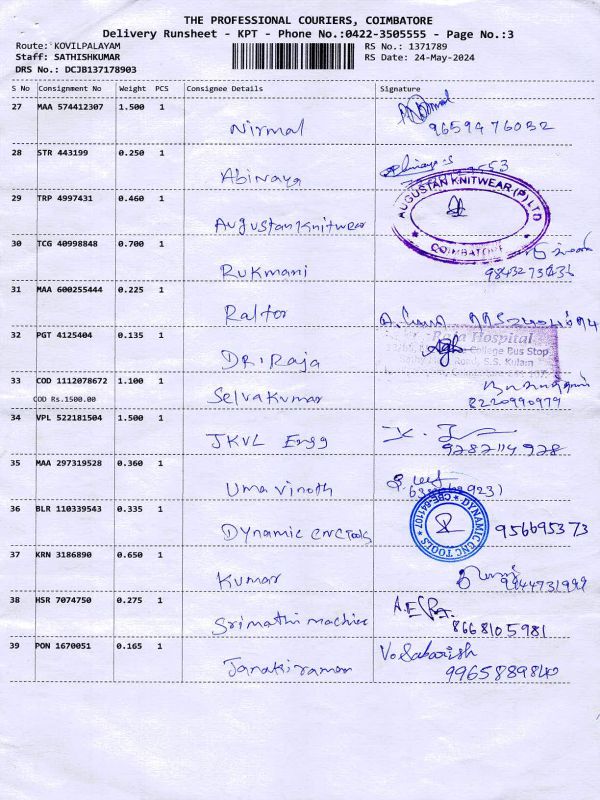 THE PROFESSIONAL COURIERS, COIMBATORE
Delivery Runsheet - KPT - Phone No.:0422-3505555 - Page No.:3
Route: KOVILPALAYAM RS No.: 1371789
Staff: SATHISHKUMAR RS Date: 24-May-2024
DRS No.: DCJB137178903
S No Consignment No Weight PCS Consignee Details Signature
27 MAA 574412307 1.500 1
Nirmal 9659476032
28 STR 443199 0.250 1
Abinaya
29 TRP 4997431 0.460 1
AUGUSTAN KNITWEAR (P) LTD
COIMBATORE
Augustan Knitwear
30 TCG 40998848 0.700 1
Rukmani
31 MAA 600255444 0.225 1
Raltor
32 PGT 4125404 0.135 1
Raja Hospital
College Bus Stop
Road, S.S. Kulam
DR. Raja
33 COD 1112078672 1.100 1
COD Rs.1500.00
Selvakumar 8220990979
34 VPL 522181504 1.500 1
JKVL Engg 9787114928
35 MAA 297319528 0.360 1
Uma Vinoth
36 BLR 110339543 0.335 1
DYNAMIC CNC TOOLS
CBE-641107
Dynamic CNC Tools 9566953 73
37 KRN 3186890 0.650 1
Kumar 9944731999
38 HSR 7074750 0.275 1
Srimathi machine 8668105981
39 PON 1670051 0.165 1
Janakiraman Vo Sabarish
9965889840